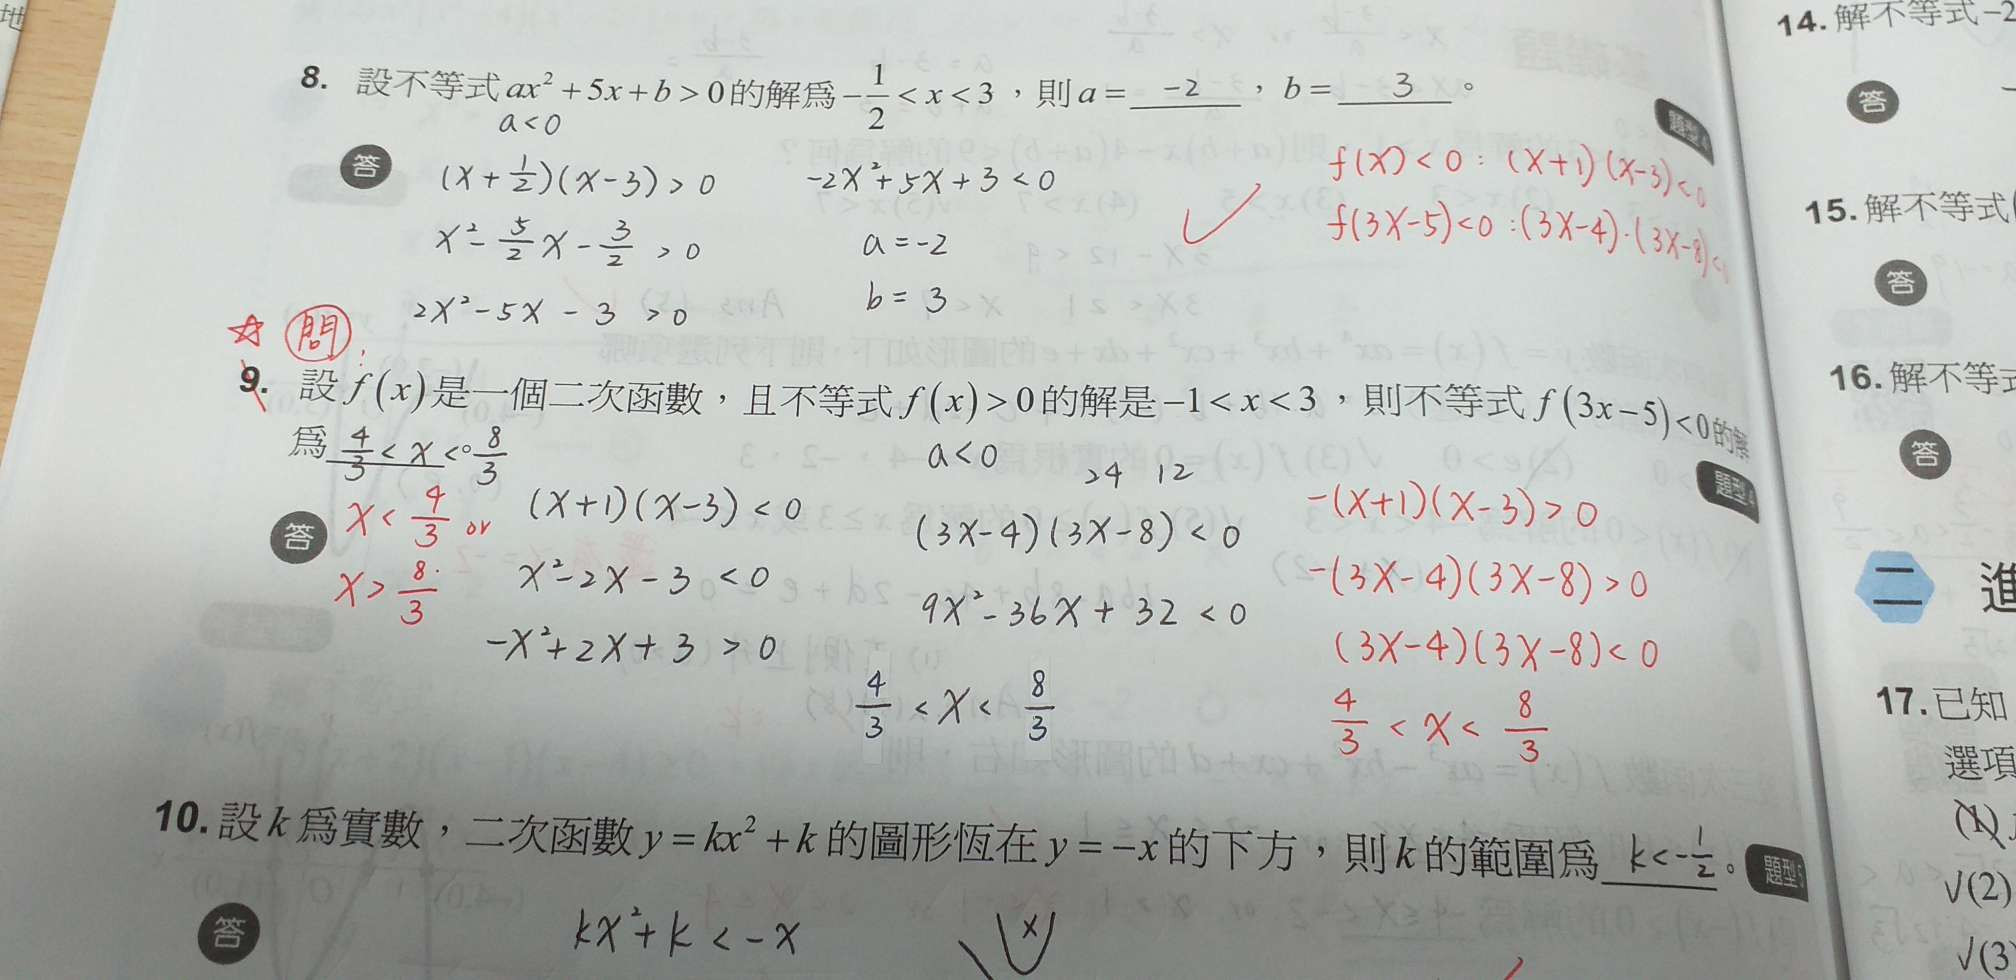 地
8. 設不等式 ax²+5x+b>0 的解為 -1/2<x<3，則 a= -2 ， b= 3 。
a<0
題型4
答
(x+1/2)(x-3)>0
x²-5/2x-3/2>0
2x²-5x-3>0
-2x²+5x+3<0
a=-2
b=3
f(x)<0:(x+1)(x-3)<0
f(3x-5)<0:(3x-4)·(3x-8)<0
☆ 問:
9. 設 f(x) 是一個二次函數，且不等式 f(x)>0 的解是 -1<x<3，則不等式 f(3x-5)<0 的解
為 4/3<x<8/3 。
a<0
24 12
題型4
答
x<4/3 or
x>8/3
(x+1)(x-3)<0
x²-2x-3<0
-x²+2x+3>0
(3x-4)(3x-8)<0
9x²-36x+32<0
4/3<x<8/3
-(x+1)(x-3)>0
-(3x-4)(3x-8)>0
(3x-4)(3x-8)<0
4/3<x<8/3
10. 設 k 為實數，二次函數 y=kx²+k 的圖形恆在 y=-x 的下方，則 k 的範圍為 k<-1/2 。
題型5
答
kx²+k<-x
x
14. 解不等式 -2
答
15. 解不等式
答
16. 解不等式
答
二 進
17. 已知
選項
(1)
√(2)
√(3)